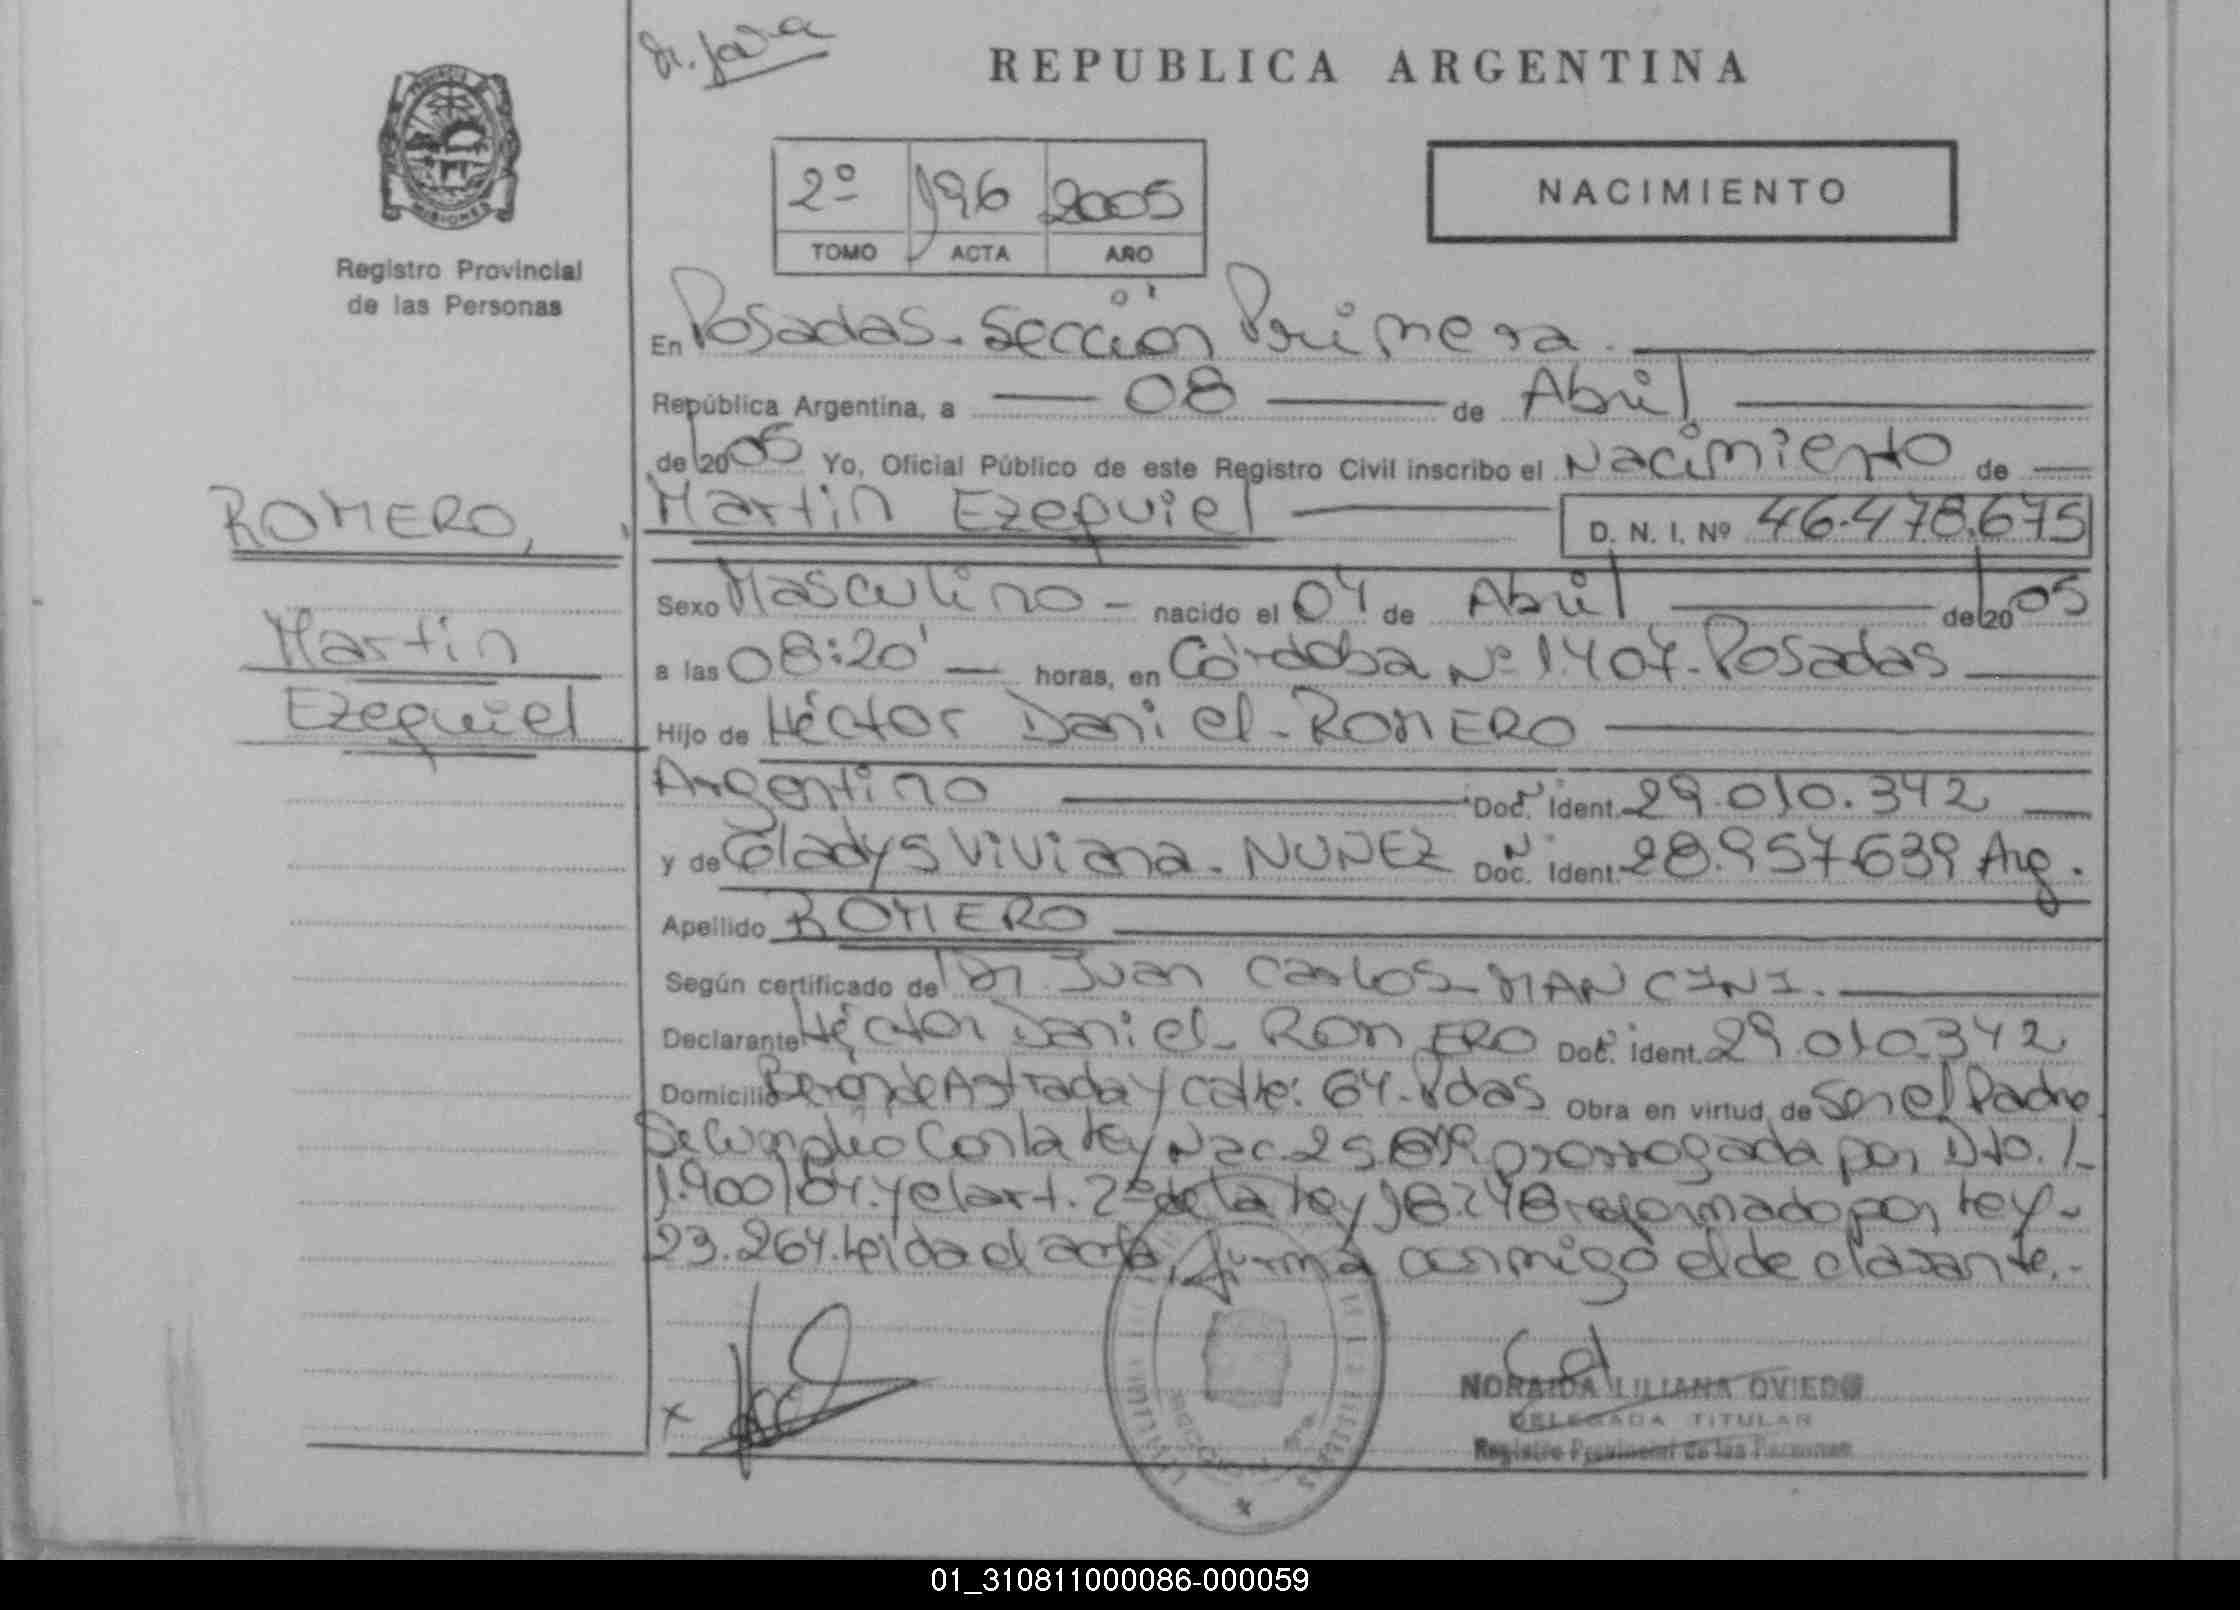 REPUBLICA ARGENTINA
MISIONES
Registro Provincial
de las Personas
2º 196 2005
TOMO ACTA AÑO
NACIMIENTO
En Posadas. Sección Primera.
República Argentina, a 08 de Abril
de 2005 Yo, Oficial Público de este Registro Civil inscribo el Nacimiento de
Martin Ezequiel D. N. I. Nº 46.478.675
ROMERO,
Martin
Ezequiel
Sexo Masculino - nacido el 04 de Abril de 2005
a las 08:20' horas, en Córdoba Nº 1407. Posadas
Hijo de Héctor Daniel - ROMERO
Argentino Doc. Ident. 29.010.342
y de Gladys Viviana. NUÑEZ Doc. Ident. 28.957.639 Arg.
Apellido ROMERO
Según certificado de Dr. Juan Carlos MANCINI.
Declarante Héctor Daniel - ROMERO Doc. Ident. 29.010.342
Domicilio Berón de Astrada y calle: 64. Pdas Obra en virtud de Ser el Padre
Se Cumplió Con la Ley Nac 25.819 prorrogada por Dto.
1.900/04. y el art. 2º de la Ley 18.248 reformado por Ley
23.264. Leída el acta, firma conmigo el declarante.-
NORAIDA LILIANA OVIEDO
DELEGADA TITULAR
Registro Provincial de las Personas
01_310811000086-000059